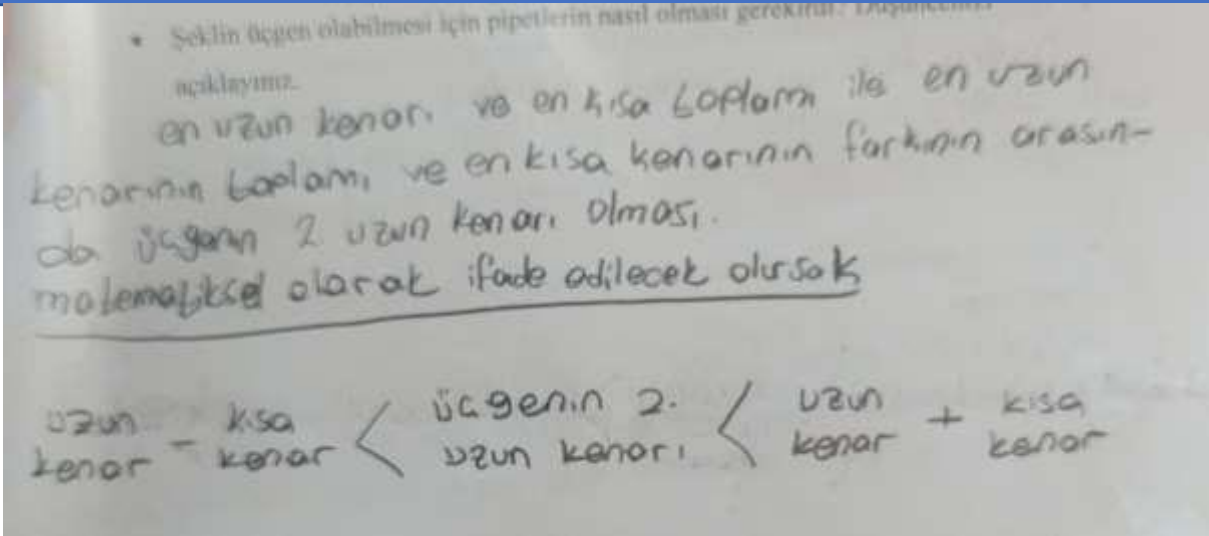 • Şeklin üçgen olabilmesi için pipetlerin nasıl olması gerekirdi?
açıklayınız.
en uzun kenarı ve en kısa toplamı ile en uzun
kenarının toplamı ve en kısa kenarının farkının arasın-
da üçgenin 2 uzun kenarı olması.
matematiksel olarak ifade edilecek olursak
uzun kenar - kısa kenar < üçgenin 2. uzun kenarı < uzun kenar + kısa kenar